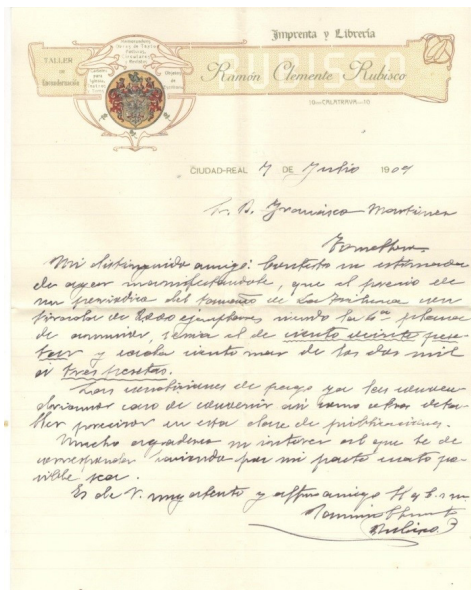 Imprenta y Librería
TALLER
DE
Encuadernación
RUBISCO
Ramón Clemente Rubisco
CALATRAVA
CIUDAD-REAL 7 DE Julio 1909
Sr. D. Francisco Martinez
Mi distinguido amigo: Contesto su estimada
de ayer manifestandole, que el precio de
un periodico del tamaño de La Tribuna con
tirada de 2.000 ejemplares siendo la 4ª plana
de anuncios, seria el de ciento veinte pese
tas y cada ciento mas de los dos mil
á tres pesetas.
Las condiciones de pago ya las
caso de convenir asi como otros deta
lles precisos en esta clase de publicaciones.
Mucho agradezco su interes al que he de
corresponder haciendo por mi parte cuanto po
sible sea.
Es de V. muy atento y affmo amigo
Ramon Clemente
Rubisco